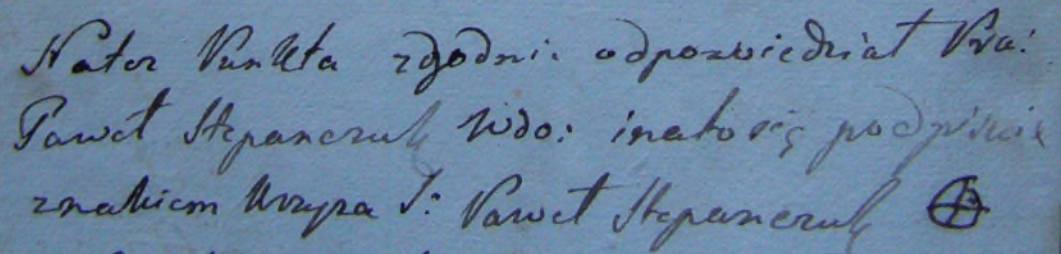 Nater Punkta zgodnie odpozwiedział Pra:
Paweł Stepanczuk Wdo: inatosię podpisuie
znakiem Krzyza S: Paweł Stepanczuk